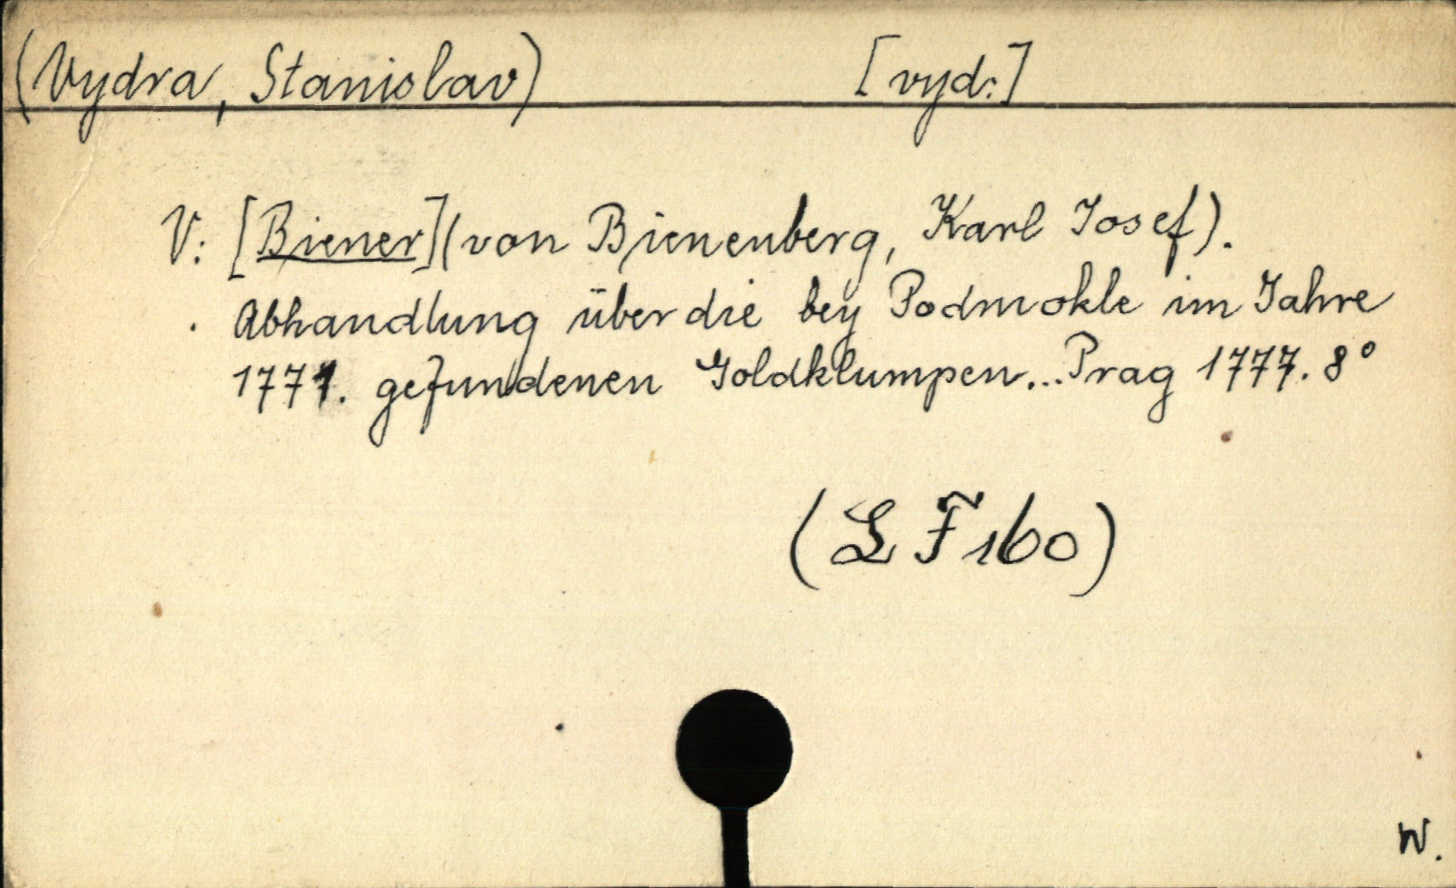 (Vydra, Stanislav) [vyd.]
V: [Biener] (von Bienenberg, Karl Josef).
Abhandlung über die bey Podmokle im Jahre
1771. gefundenen Goldklumpen... Prag 1777. 8°
(L F 160)
W.